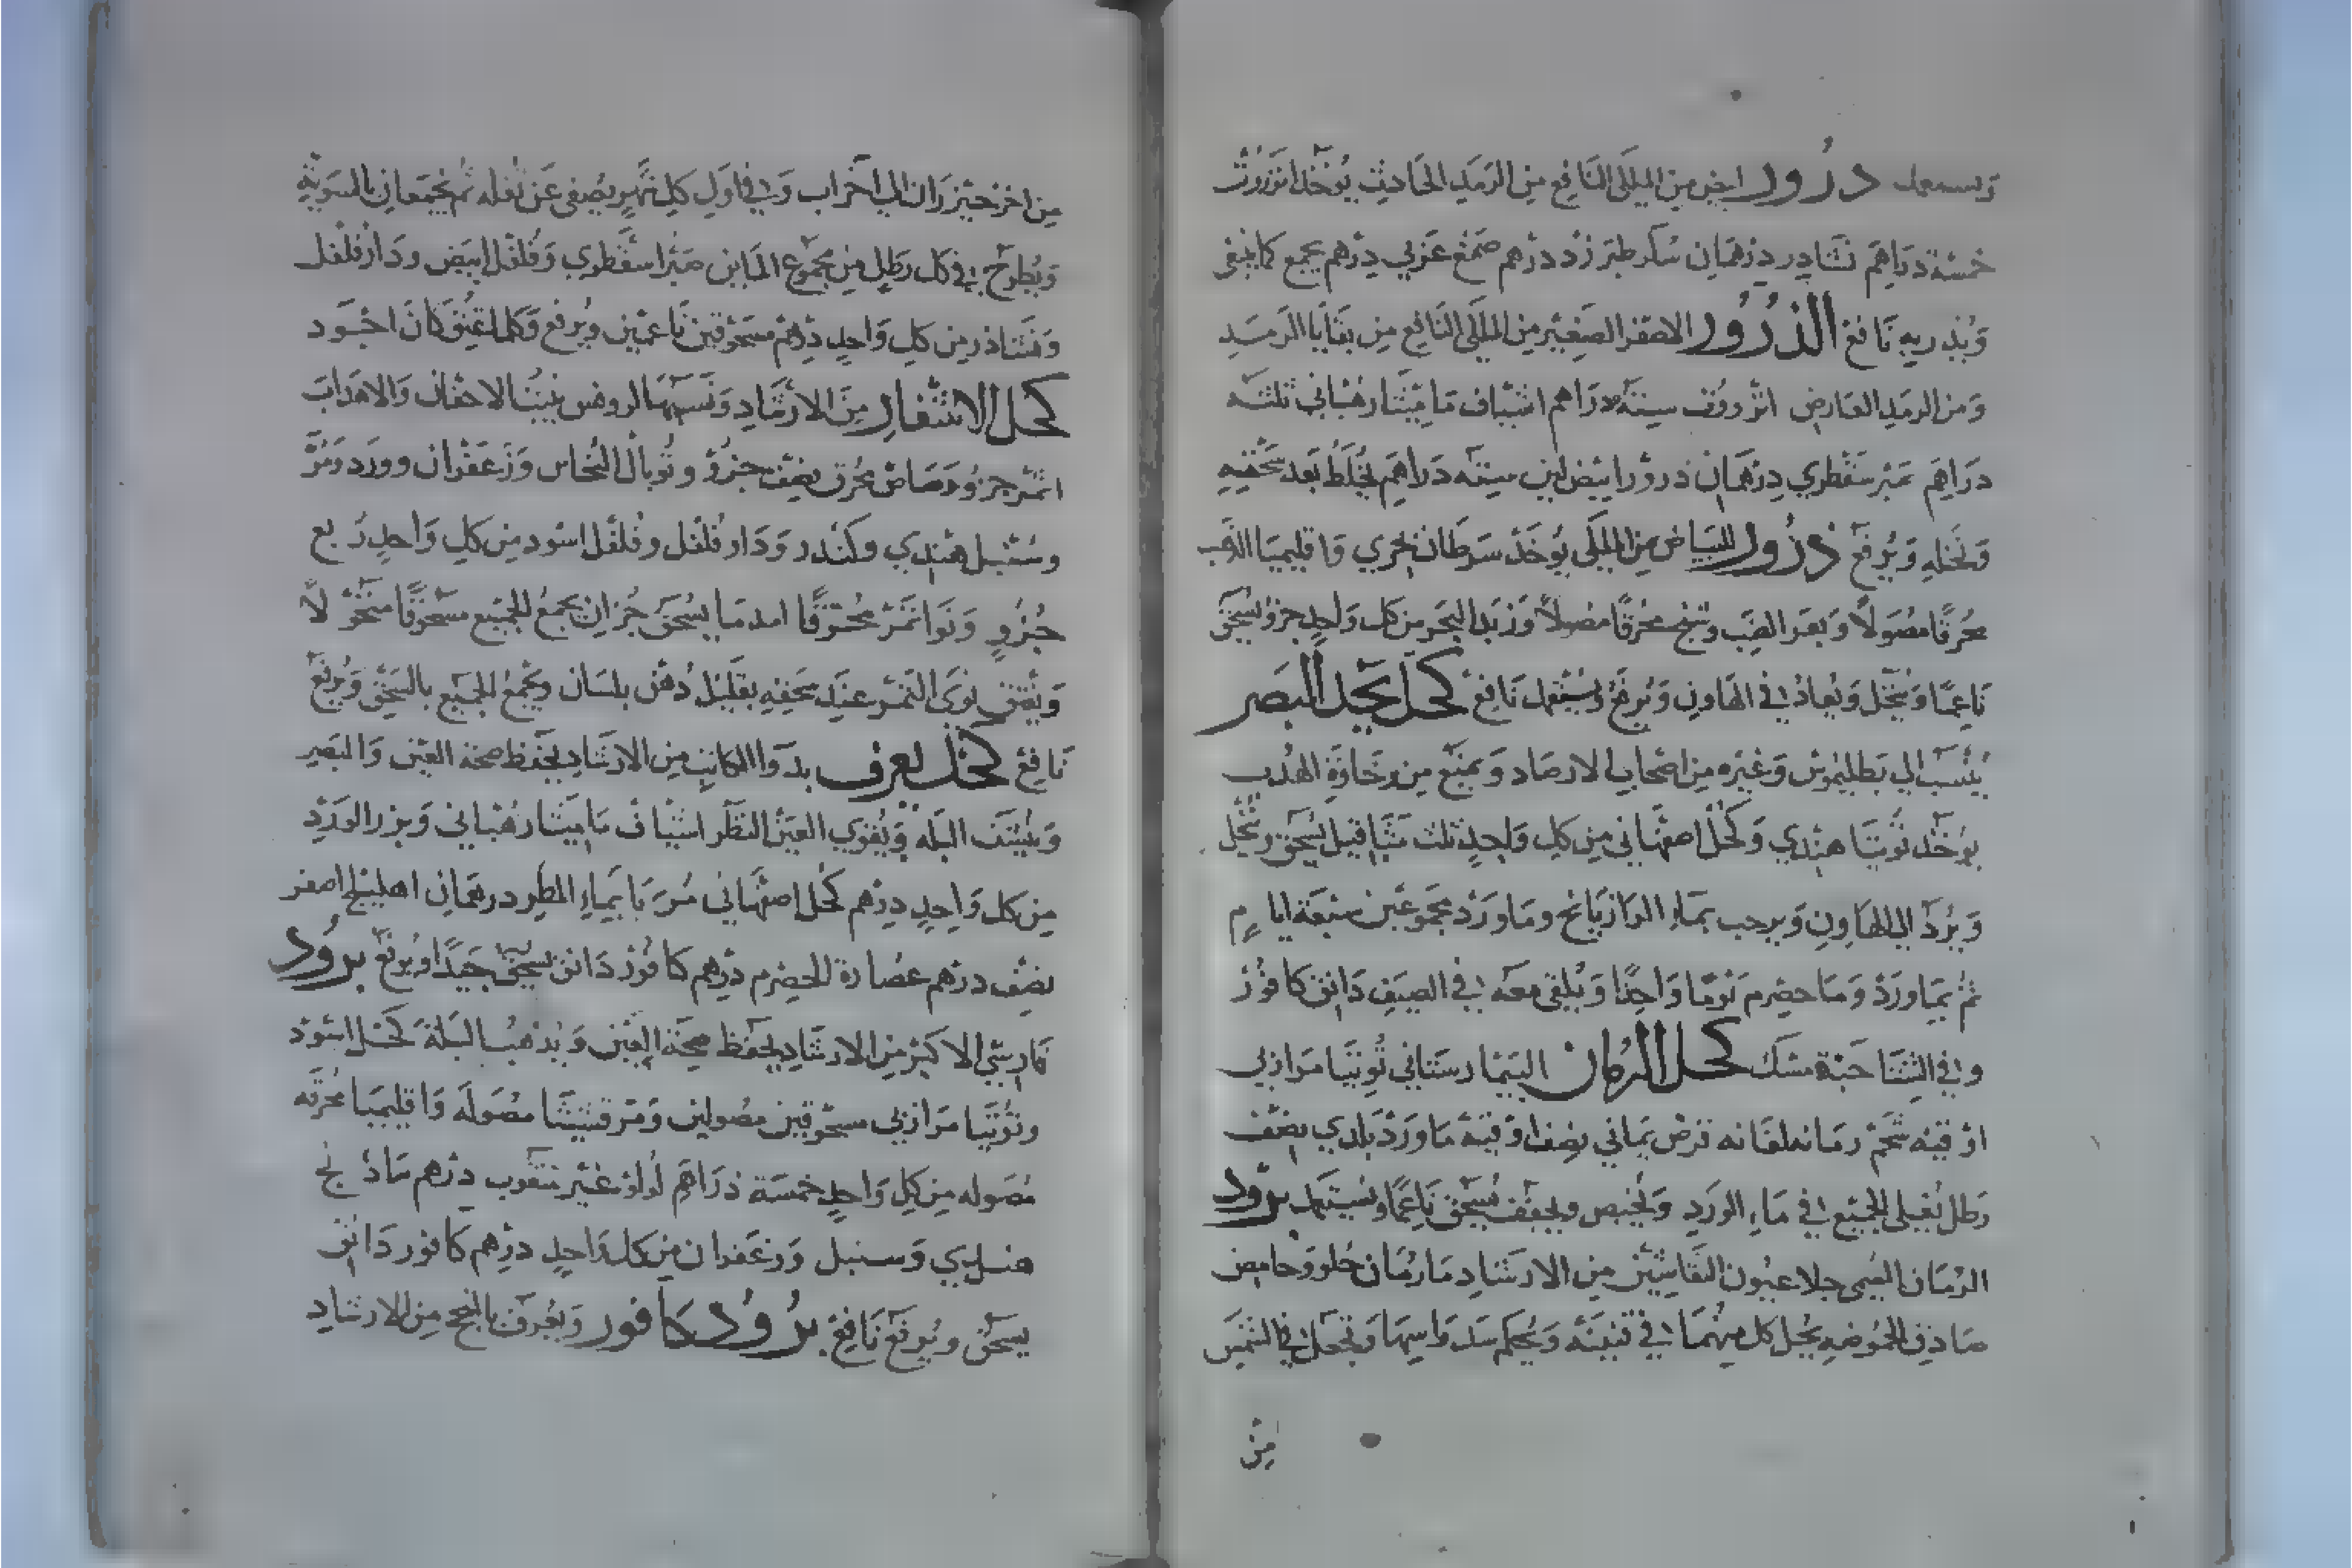 ويستعمل درور ابيض من الملكي النافع من الرمد الحادث يوخذ انزروت
خمسة دراهم نشادر درهمان سكر طبرزد درهم صمغ عربي درهم يجمع كما ينبغي
ويذر به نافع الذرور الاصفر الصغير من الملكي النافع من بقايا الرمد
ومن الرمد العارض انزروت ستة دراهم اشياف ماميثا رهباني ثلثه
دراهم صبر سقطري درهمان ذرور ابيض ستة دراهم يخلط بعد سحقه
ونخله ويرفع ذرور للبياض من الملكي يوخذ سرطان بحري واقليميا الذهب
محرقا مصولا وبعر الضب وشيح محرقا مصولا وزبد البحر من كل واحد جزو يسحق
ناعما وينخل ويعاد في الهاون ويرفع ويستعمل نافع كحل يجل البصر
ينسب الي بطليموس وغيره من اصحاب الارصاد ويمنع من رخاوة الهدب
يوخذ توتيا هندي وكحل اصفهاني من كل واحد ثلث مثاقيل يسحق وينخل
ويرد الي الهاون ويرحب بماء الرازيانج وماورد مجموعين سبعة ايام
ثم بماورد وماحضرم يوما واحدا ويلقي معه في الصيف دانق كافور
وفي الشتا حبة مسك كحل الرمان البيمارستاني توتيا مرازبي
اوقيه شحم رمانه قرض يماني نصف اوقيه ماورد بلدي نصف
رطل يغلي الجميع في ماء الورد ويجفف يسحق ناعما ويستعمل برود
الرمان المسمي جلا عيون النقاشين من الارشاد مارمان حلو وحامض
صادق الحموضه يجعل كل منهما في قنينه ويحكم سد راسها وتجعل في الشمس
من
من اخر حزيران الي اخراب وفي اول كل شهر يصفي عن ثفله ثم يجمعان بالسويه
ويطرح في كل رطل من مجموع المايين صبر اسقطري وفلفل ابيض ودارفلفل
ونشادر من كل واحد درهم مسحوقين ناعمين ويرفع وكلما عتق كان اجود
كحل الانتثار من الارشاد ينبت الاجفان والاهداب
اثمد جزو رصاص محرق نصف جزو وتوبال النحاس وزعفران وورد ومر
وسنبل هندي وكندر ودار فلفل وفلفل اسود من كل واحد ربع
جزو ونوا تمر محترقا يسحق جزان يجمع الجميع مسحوقا منخولا
نوي التمر عند سحقه بقليل دهن بلسان ويجمع الجميع بالسحق ويرفع
نافع كحل يعرف بدوا الكاتب من الارشاد يحفظ صحة العين والبصر
وينشف البله ويقوي العين النظر اشياف ماميثا رهباني وبزر الورد
من كل واحد درهم كحل اصفهاني مربا بماء المطر درهمان اهليلج اصفر
نصف درهم عصارة الحضرم درهم كافور دانق يسحق جيدا ويرفع برود
فارسي الاكبر من الارشاد يحفظ صحة العين ويذهب البلة كحل اسود
وتوتيا مرازبي مسحوقين مصولين ومرقشيثا مصوله واقليميا محرقه
مصوله من كل واحد خمسة دراهم لولو غير مثقوب درهم ساذج
هندي وسنبل وزعفران من كل واحد درهم كافور دانق
يسحق ويرفع نافع برود كافور ويعرف من الارشاد